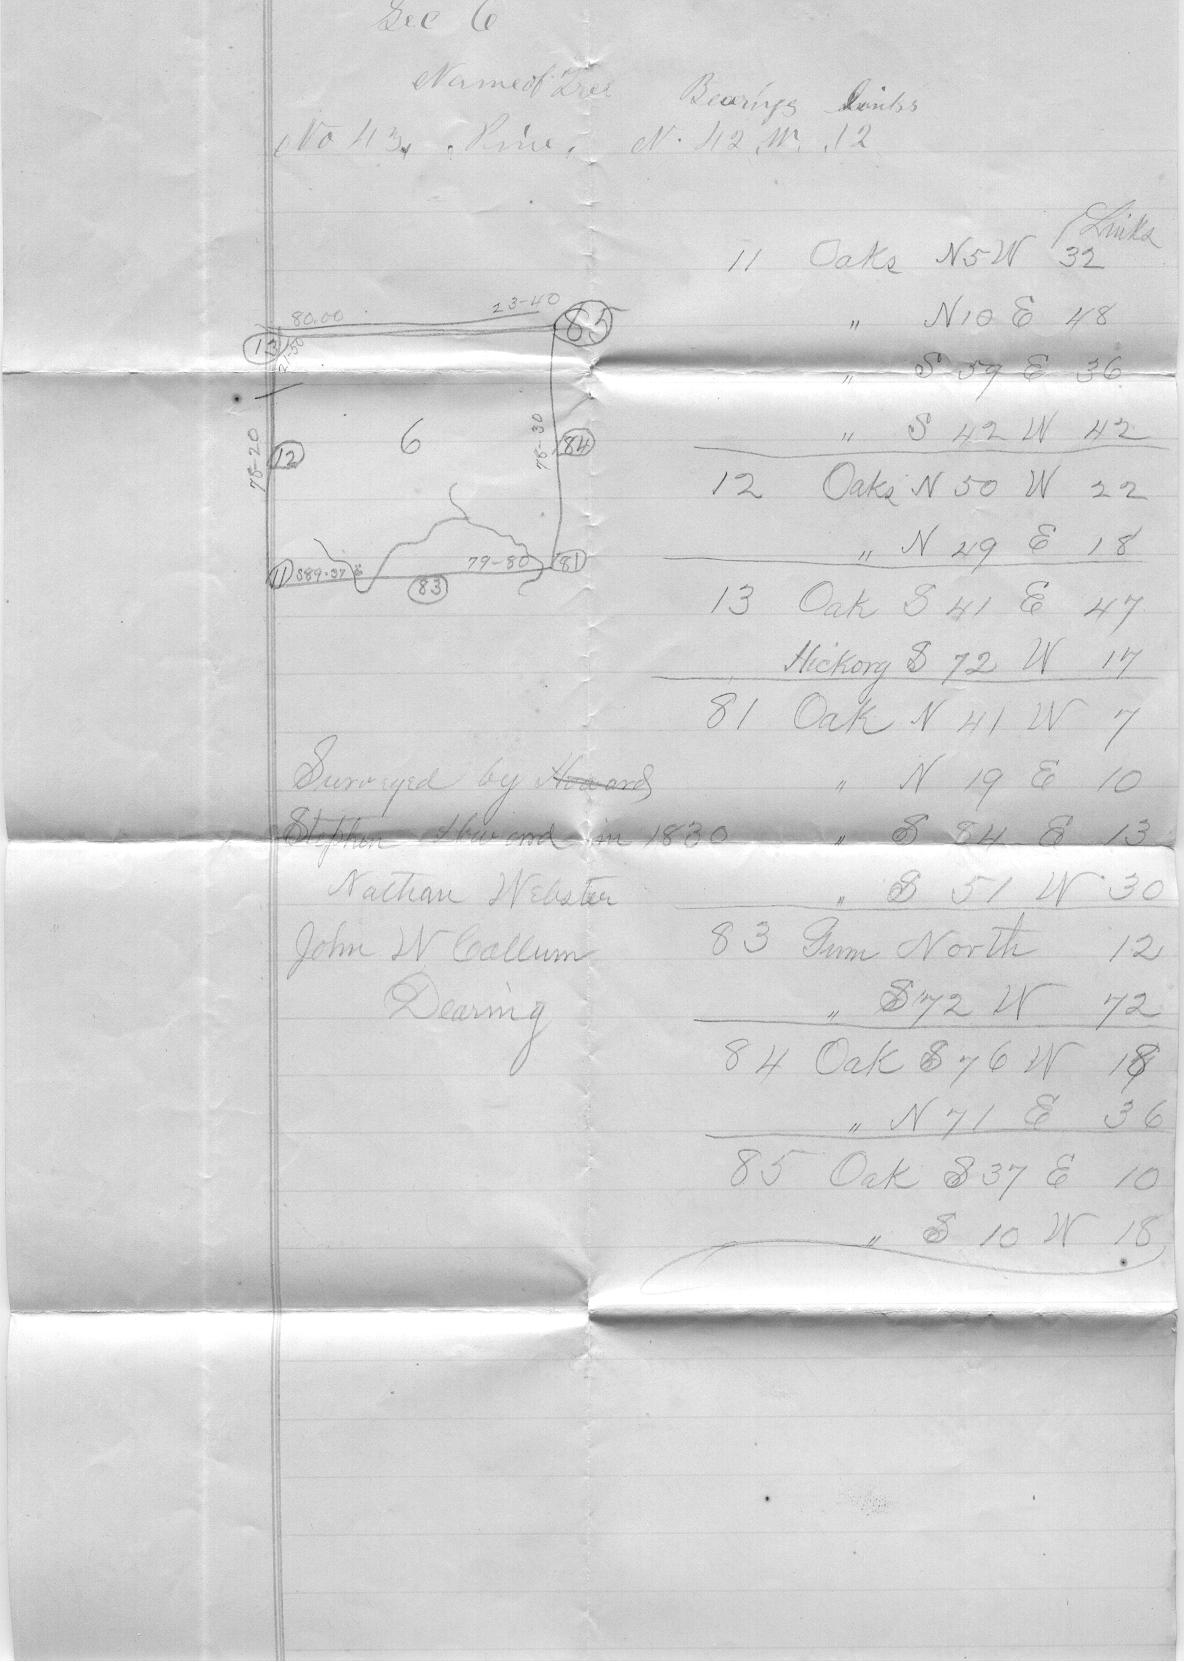 Sec 6
Name of Tree Bearings Links
No 43. Pine. N. 42 W. 12
Links
11 Oaks N 5 W 32
" N 10 E 48
" S 39 E 36
" S 42 W 42
12 Oaks N 50 W 22
" N 49 E 18
13 Oak S 41 E 47
Hickory S 72 W 17
81 Oak N 41 W 7
" N 19 E 10
" S 84 E 13
" S 51 W 30
83 Gum North 12
" S 72 W 72
84 Oak S 76 W 18
" N 71 E 36
85 Oak S 37 E 10
" S 10 W 18
80.00 23-40
85
13
21-50
78-20
12
6
78-30
84
11 S89-37 E
83
79-80
81
Surveyed by Howard
Stephen Howard in 1830
Nathan Webster
John W Callum
Dearing